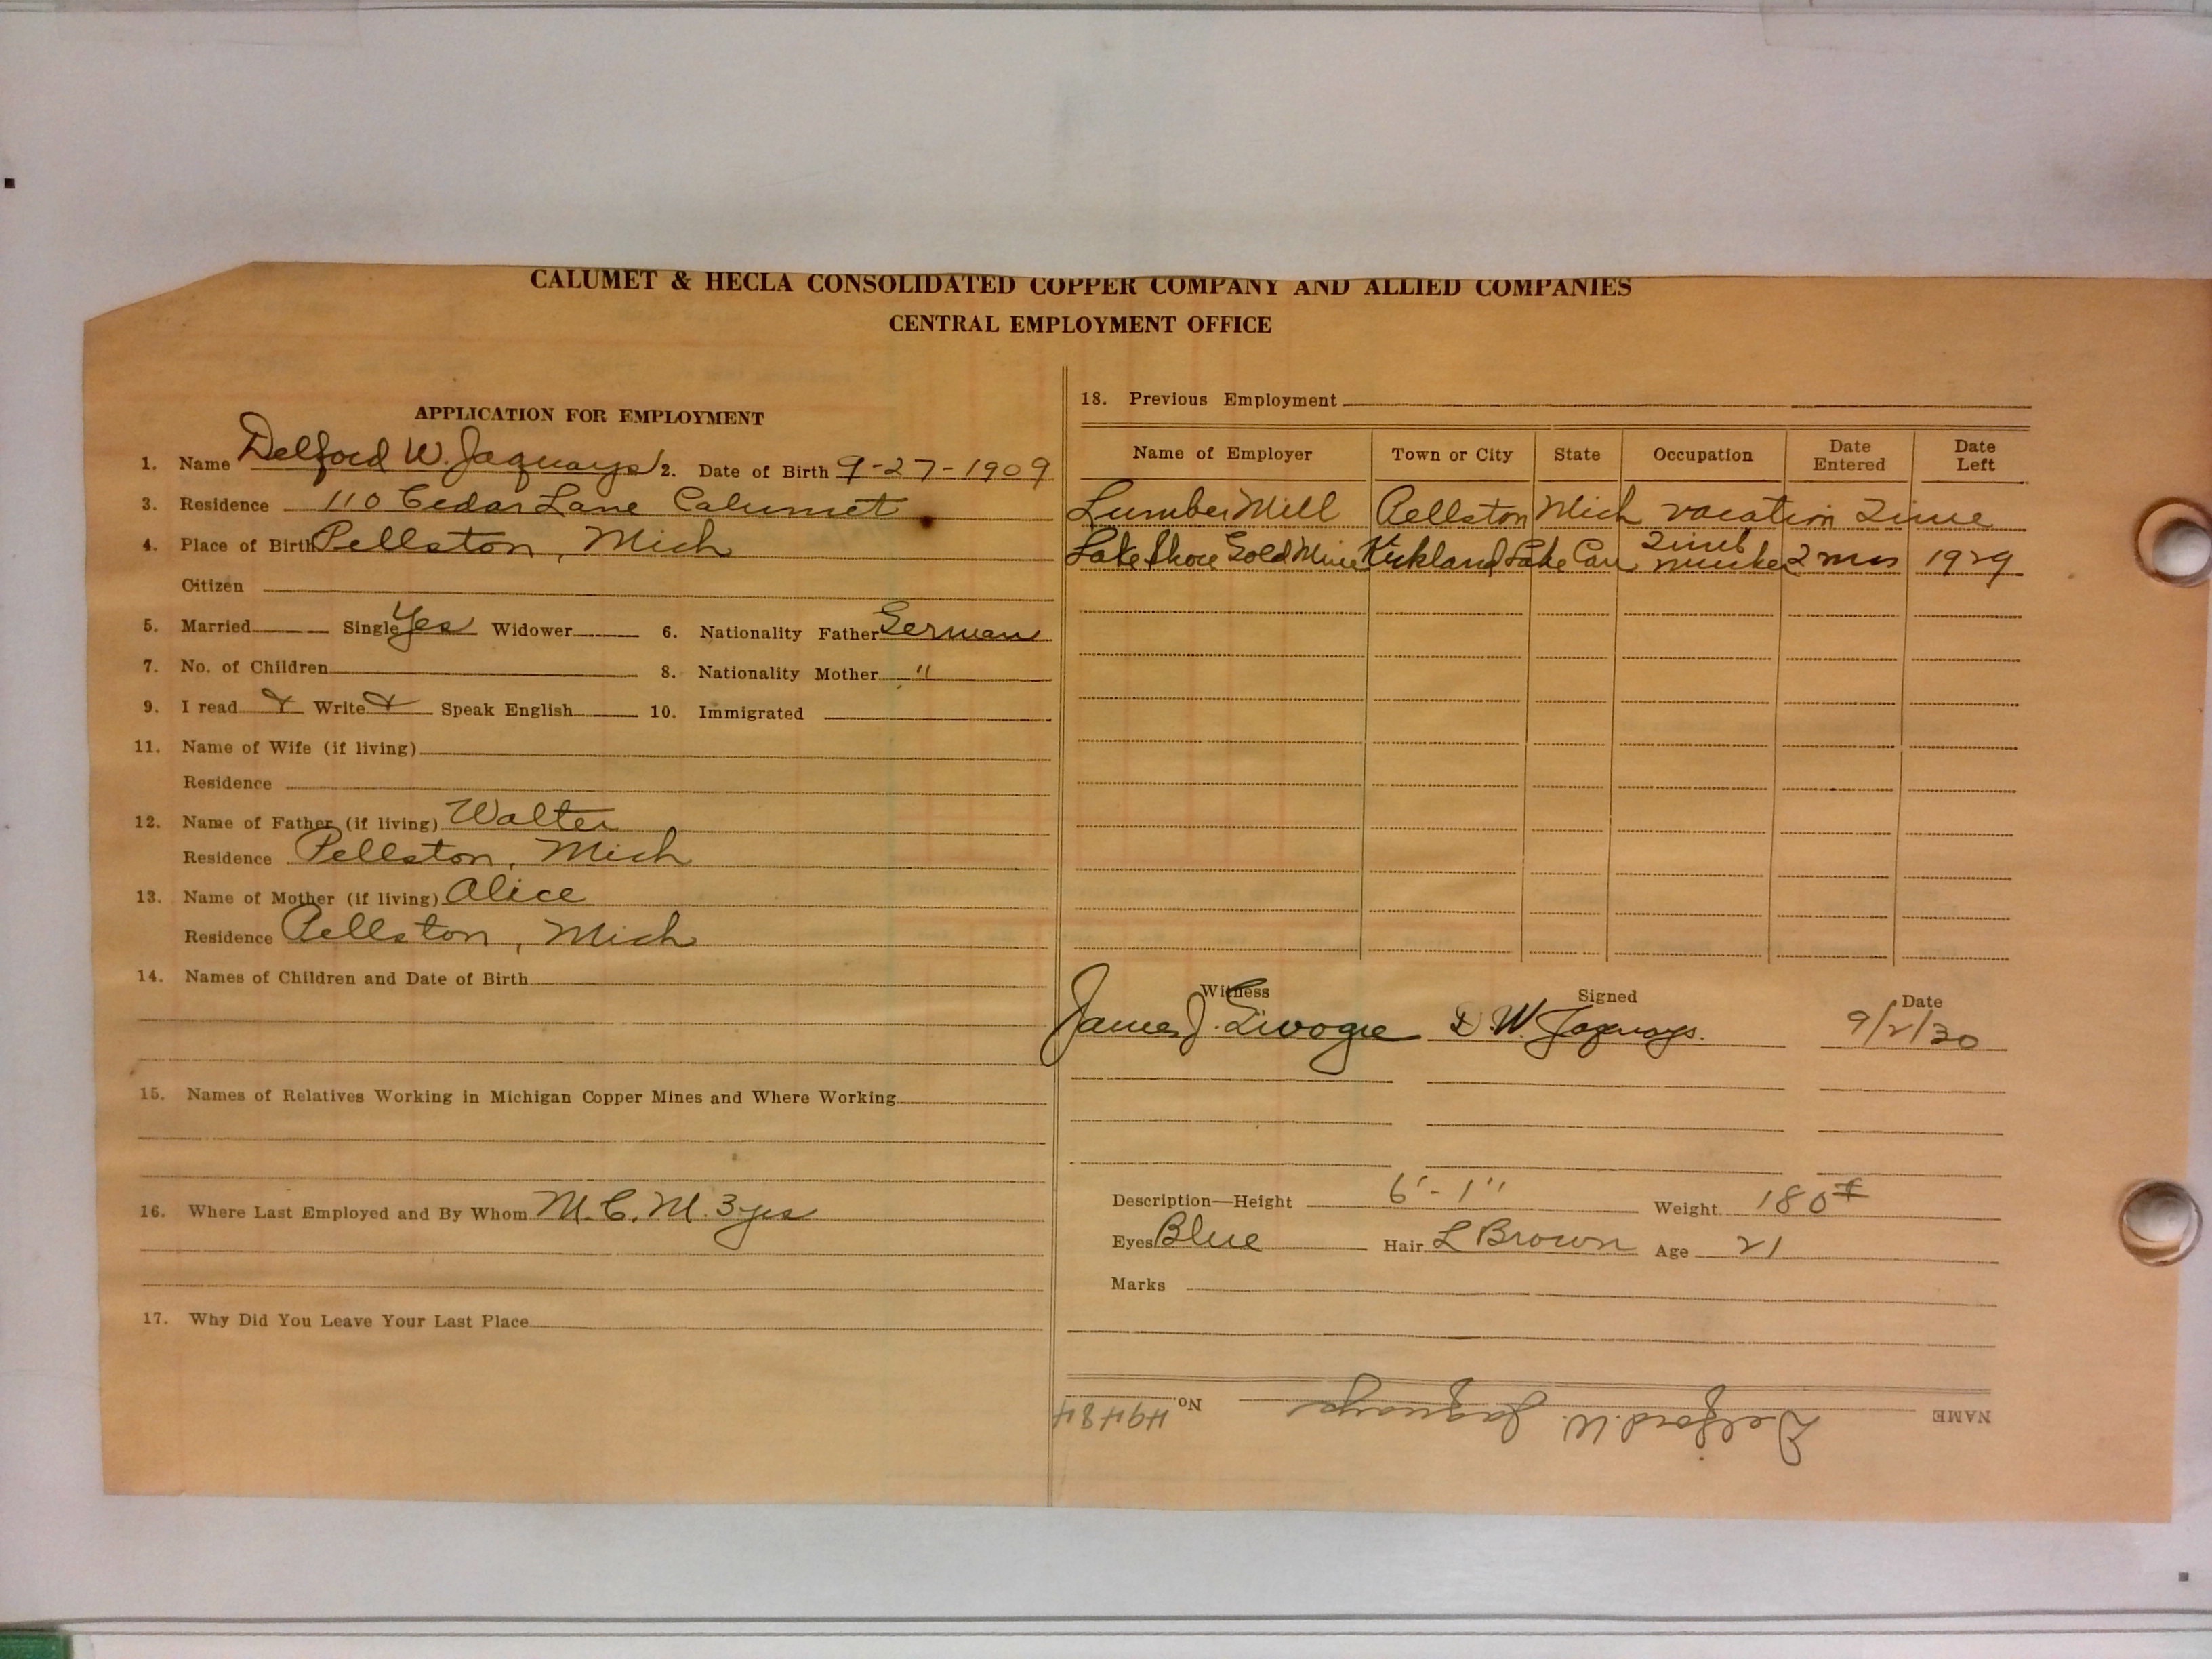 CALUMET & HECLA CONSOLIDATED COPPER COMPANY AND ALLIED COMPANIES
CENTRAL EMPLOYMENT OFFICE
APPLICATION FOR EMPLOYMENT
1. Name Delford W. Jaquays 2. Date of Birth 9-27-1909
3. Residence 110 Cedar Lane Calumet
4. Place of Birth Pellston, Mich
Citizen
5. Married Single Yes Widower 6. Nationality Father German
7. No. of Children 8. Nationality Mother "
9. I read Write Speak English 10. Immigrated
11. Name of Wife (if living)
Residence
12. Name of Father (if living) Walter
Residence Pellston, Mich
13. Name of Mother (if living) Alice
Residence Pellston, Mich
14. Names of Children and Date of Birth
15. Names of Relatives Working in Michigan Copper Mines and Where Working
16. Where Last Employed and By Whom M.C.M. 3 yrs
17. Why Did You Leave Your Last Place
18. Previous Employment
Name of Employer Town or City State Occupation Date Entered Date Left
Lumber Mill Pellston Mich vacation Time
Lake Shore Gold Mine Kirkland Lake Can 2 mos 1929
Witness Signed Date
James J. D.W. Jaquays. 9/2/30
Description—Height 6'-1" Weight 180#
Eyes Blue Hair L Brown Age 21
Marks
NAME Delford W. Jaquays No. 49484